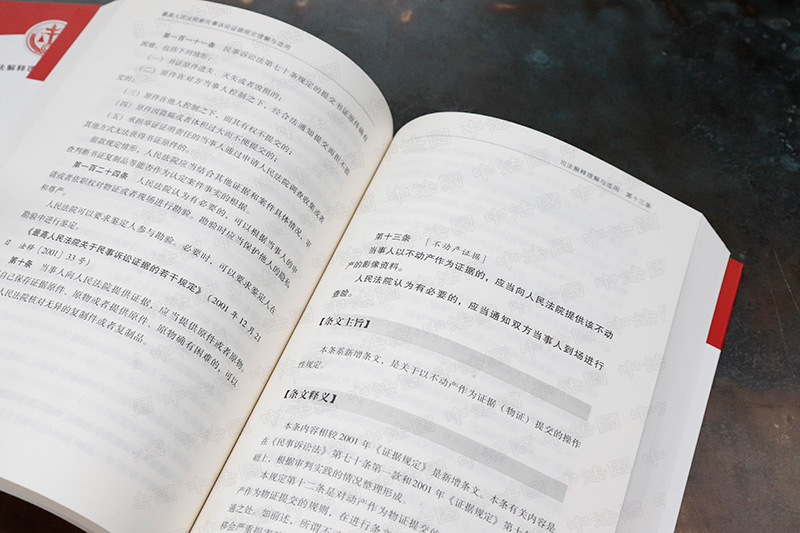 法解释理
最高人民法院新民事诉讼证据规定理解与适用
第一百一十一条 民事诉讼法第七十条规定的提交书证原件确有
困难，包括下列情形：
（一）书证原件遗失、灭失或者毁损的；
（二）原件在对方当事人控制之下，经合法通知提交而拒不提
交的；
（三）原件在他人控制之下，而其有权不提交的；
（四）原件因篇幅或者体积过大而不便提交的；
（五）承担举证证明责任的当事人通过申请人民法院调查收集或者
其他方式无法获得书证原件的。
前款规定情形，人民法院应当结合其他证据和案件具体情况，审
查判断书证复制品等能否作为认定案件事实的根据。
第一百二十四条 人民法院认为有必要的，可以根据当事人的申
请或者依职权对物证或者现场进行勘验。勘验时应当保护他人的隐私
和尊严。
人民法院可以要求鉴定人参与勘验。必要时，可以要求鉴定人在
勘验中进行鉴定。
《最高人民法院关于民事诉讼证据的若干规定》（2001 年 12 月 21
日 法释〔2001〕33 号）
第十条 当事人向人民法院提供证据，应当提供原件或者原物。
自己保存证据原件、原物或者提供原件、原物确有困难的，可以
人民法院核对无异的复制件或者复制品。
司法解释理解与适用 第十三条
第十三条 ［不动产证据］
当事人以不动产作为证据的，应当向人民法院提供该不动
产的影像资料。
人民法院认为有必要的，应当通知双方当事人到场进行
查验。
【条文主旨】
本条系新增条文，是关于以不动产作为证据（物证）提交的操作
性规定。
【条文释义】
本条内容相较2001 年《证据规定》是新增条文。本条有关内容是
在《民事诉讼法》第七十条第一款和2001 年《证据规定》第十
础上，根据审判实践的情况整理形成。
本规定第十二条是对动产作为物证提交的
产作为物证提交的规则，在进行条文
通之处。如前述，所谓不动
移会严重损害